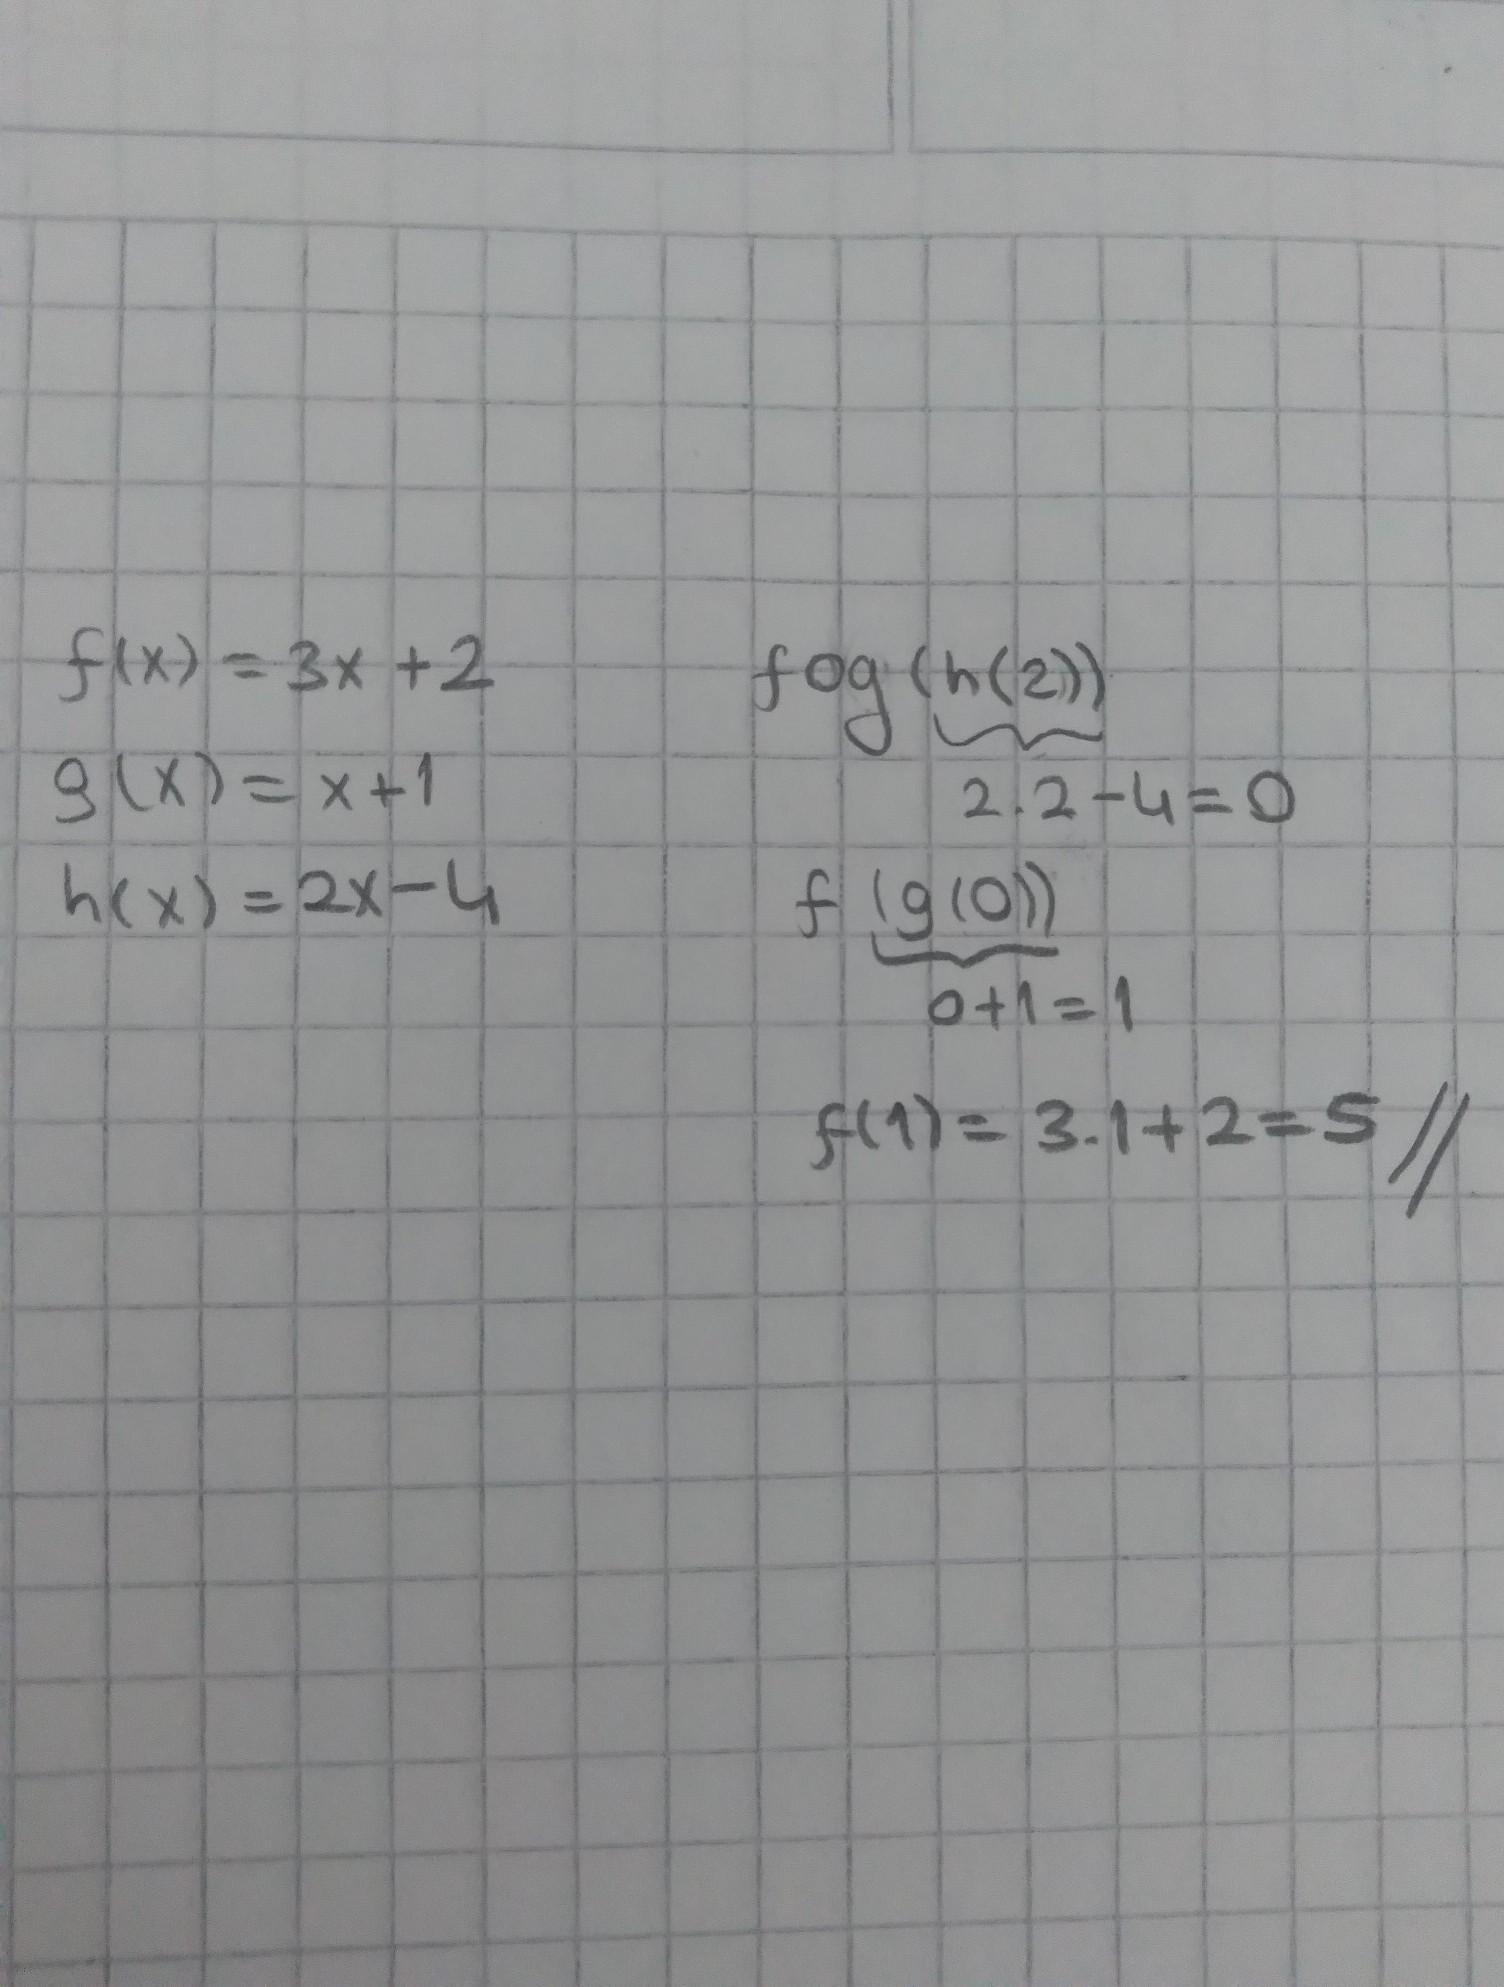 f(x) = 3x + 2
g(x) = x+1
h(x) = 2x-4
fog(h(2))
2.2-4=0
f(g(0))
0+1=1
f(1) = 3.1+2=5 //